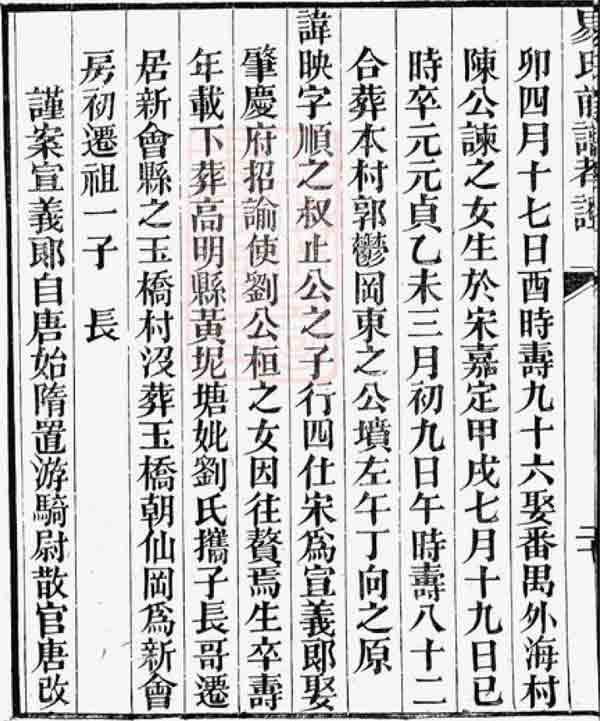 易氏前譜考證
卯四月十七日酉時壽九十六娶番禺外海村
陳公諫之女生於宋嘉定甲戌七月十九日巳
時卒元元貞乙未三月初九日午時壽八十二
合葬本村郭鬱岡東之公墳左午丁向之原
諱映字順之叔止公之子行四仕宋爲宣義郎娶
肇慶府招諭使劉公桓之女因往贅焉生卒壽
年載下葬高明縣黃坭塘妣劉氏攜子長哥遷
居新會縣之玉橋村沒葬玉橋朝仙岡爲新會
房初遷祖一子　長
謹案宣義郎自唐始隋置游騎尉散官唐改